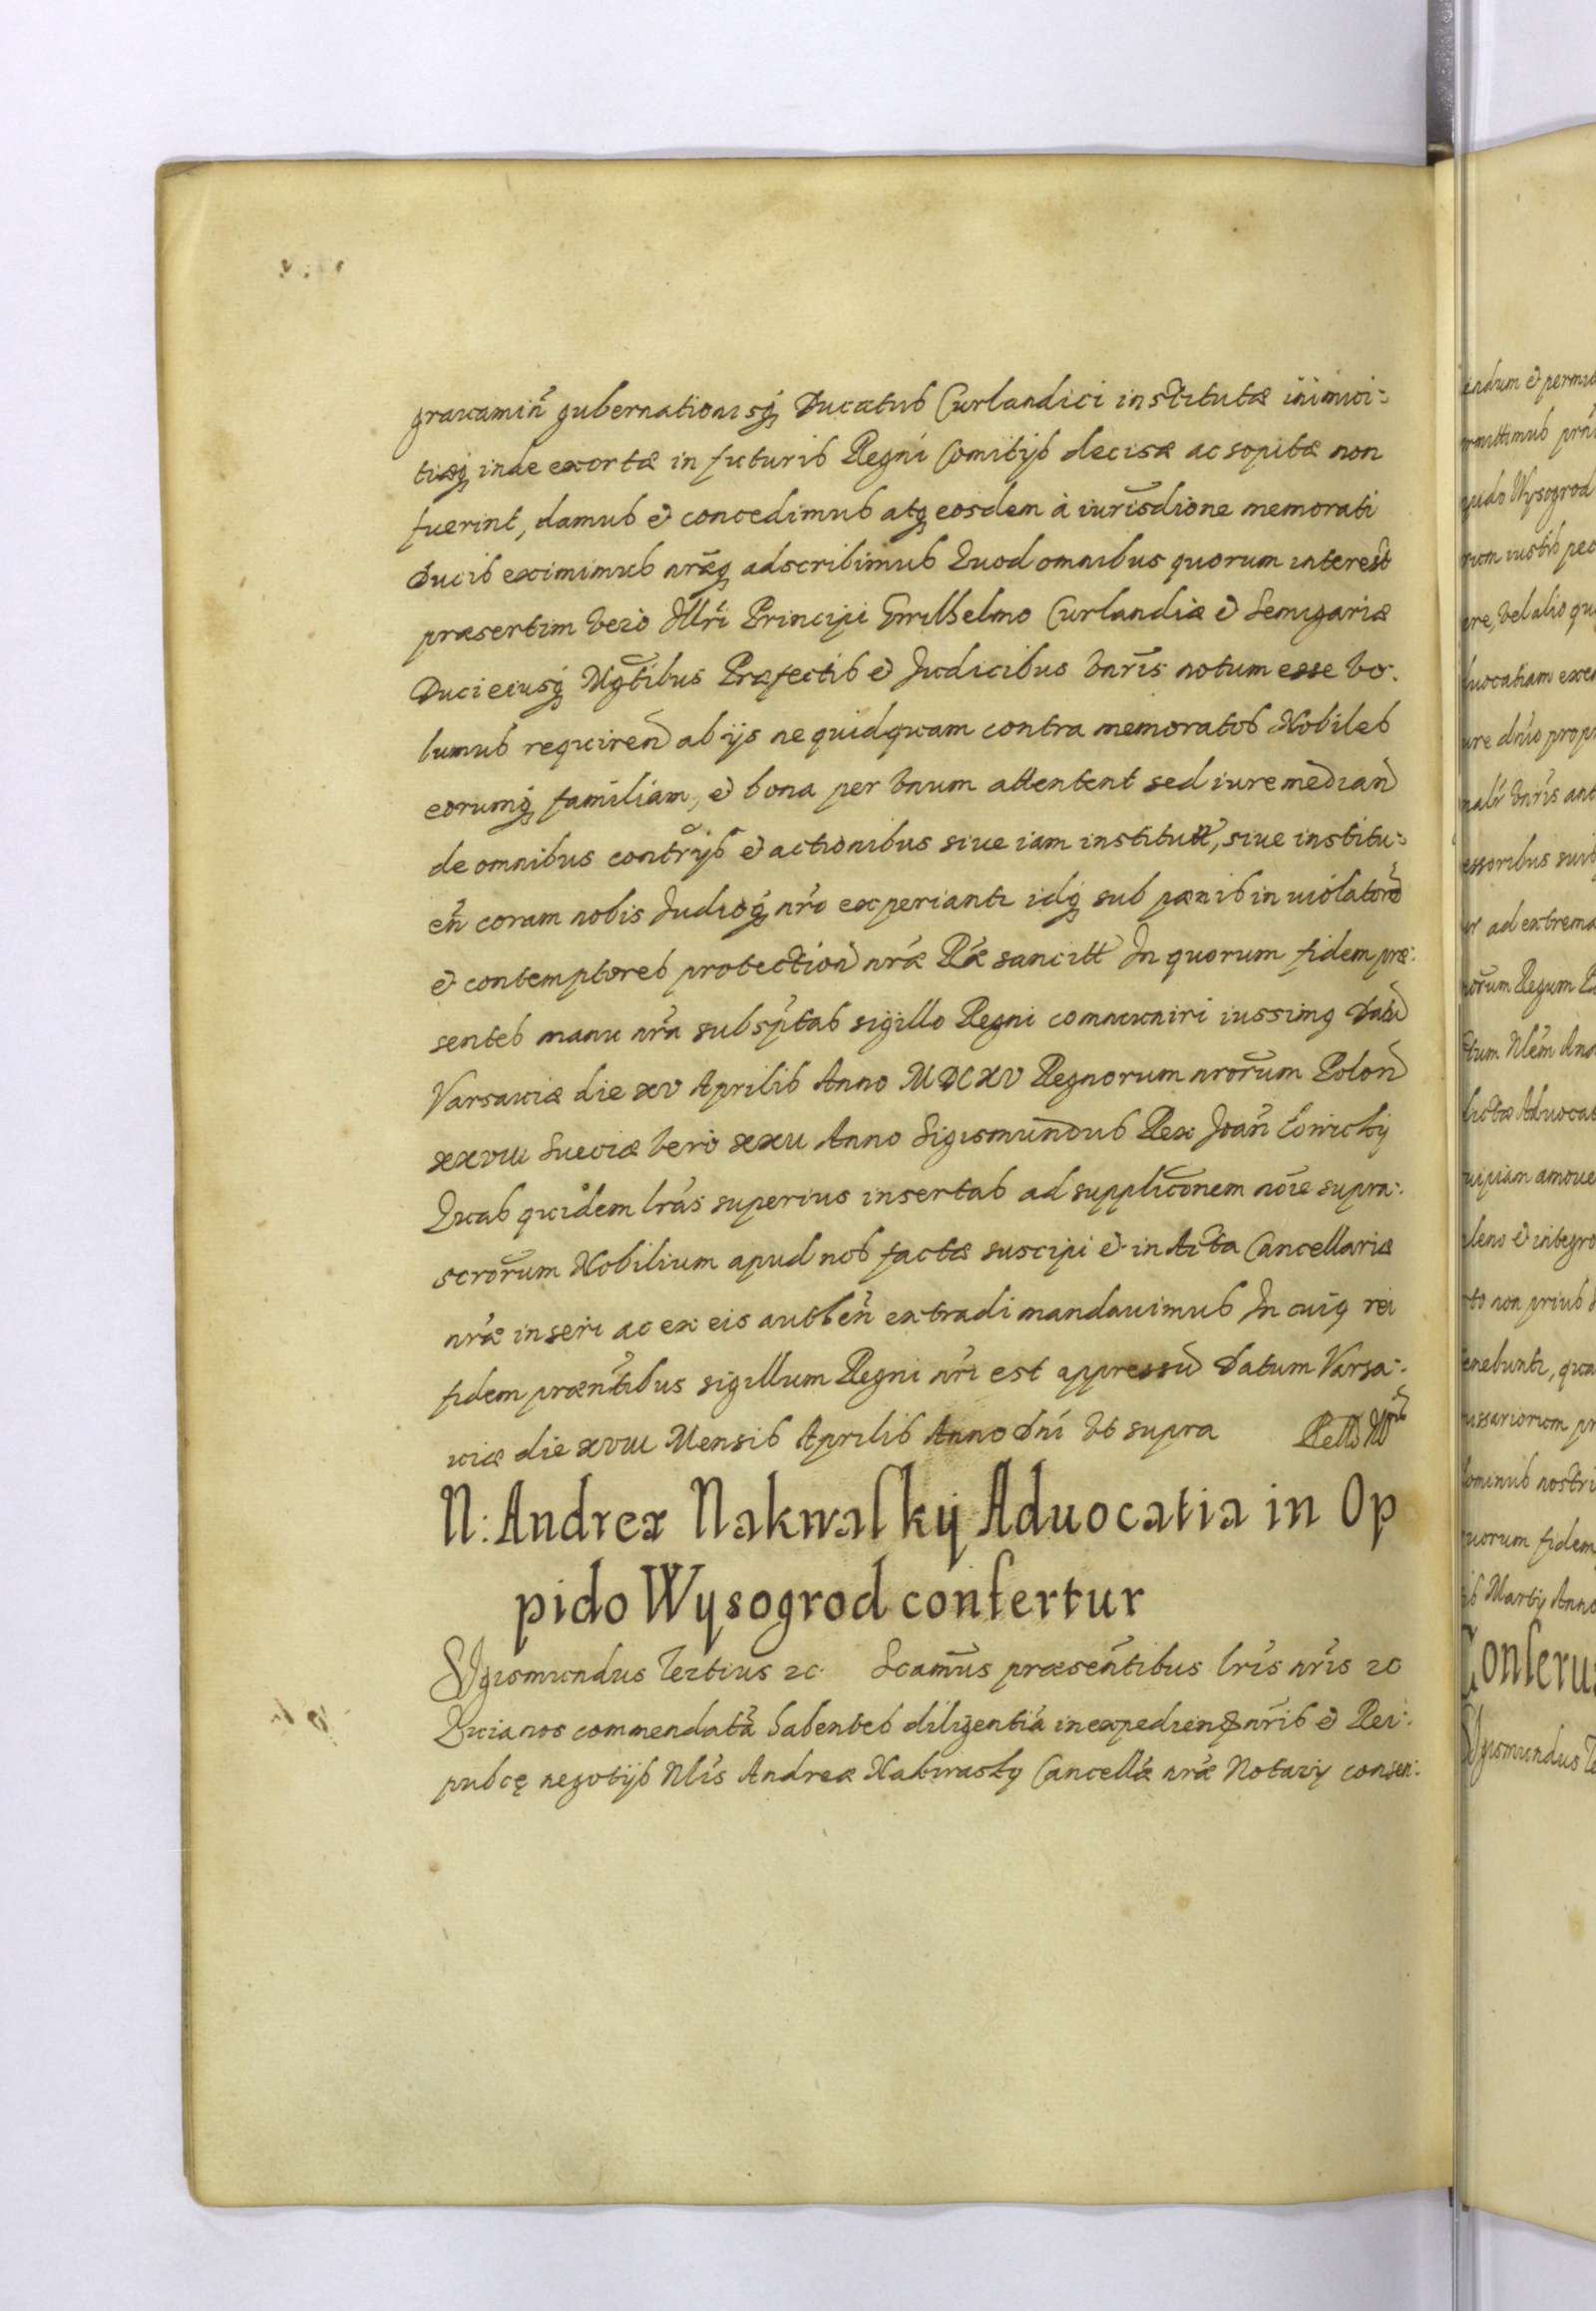 grauamin̄ gubernationisq Ducatus Curlandici institutæ inimici:
tiæq inde exortæ in futuris Regni Comitijs decisæ ac sopitæ non
fuerint, damus et concedimus atq eosdem à iurisdione memorati
Ducis eximimus nræq adscribimus Quod omnibus quorum interest
præsertim vero Illri Principi Guilhelmo Curlandiæ et Semigariæ
Duci eiusq Mgtibus Præfectis et Judicibus vnris notum esse vo:
lumus requiren ab ijs ne quidquam contra memoratos Nobiles
eorumq familiam, et bona per vnum attentent sed iure median
de omnibus contrijs et actionibus siue iam institutt, siue institu:
en coram nobis Judioq nro experiantr idq sub pænis in uiolatores
et contemptores protection nræ Ræ sancitt In quorum fidem præ:
sentes manu nra subsptas sigillo Regni communiri iussimq Datu
Varsauiæ die xv Aprilis Anno MDCXV Regnorum nrorum Polon
xxviii Sueciæ vero xxii Anno Sigismundus Rex Joan̄ Lowicky
Quas quidem lras superius insertas ad supplicōnem noīe supra:
scrorum Nobilium apud nos factæ suscipi et in Acta Cancellariæ
nræ inseri ac ex eis authen extradi mandauimus In cuiq rei
fidem præntibus sigillum Regni nri est appressu Datum Varsa:
uiæ die xviii Mensis Aprilis Anno Dni vt supra
N: Andreæ Nakwalskij Aduocatia in Op
pido Wysogrod confertur
Sigismundus Tertius 2c Scamus præsentibus lris nris 2c
Quia nos commendata habentes diligentia in expedien nris et Rei:
pubcę negotijs Nlis Andreæ Nakwasky Cancellæ nræ Notarij consen: